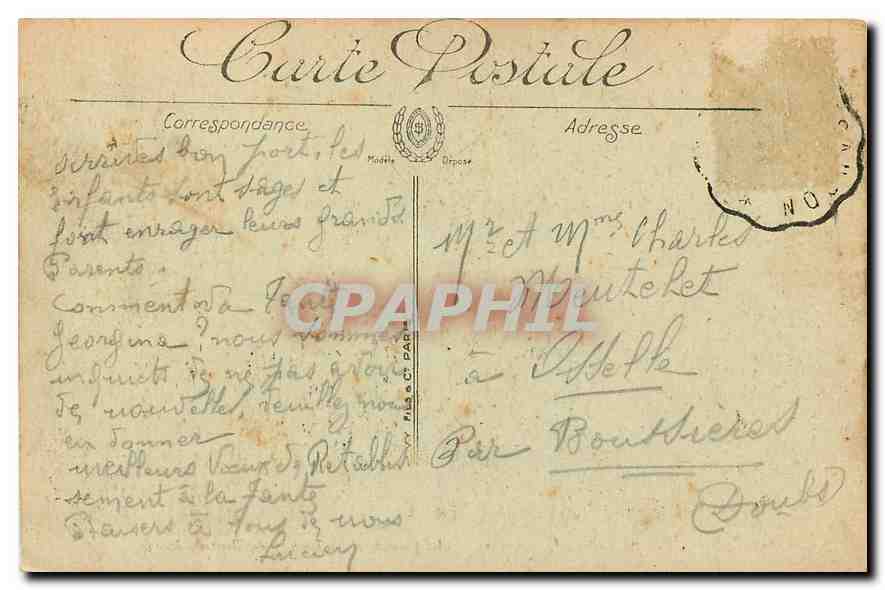 Carte Postale
Correspondance
Adresse
Modèle Déposé
$
arrivés bon port, les
Enfants sont sages et
font enrager leurs grands
Parents.
comment va Tante
Georgina? nous sommes
inquiets de ne pas avoir
de nouvelles, veuillez nous
en donner
meilleurs Vœux de Retablis
sement à la Tante
Baisers à tous de nous
Lucien
Mr et Mme Charles
à Osselle
Par Boussières
Doubs
FILS & Cie PARIS
CPAPHIL
ON